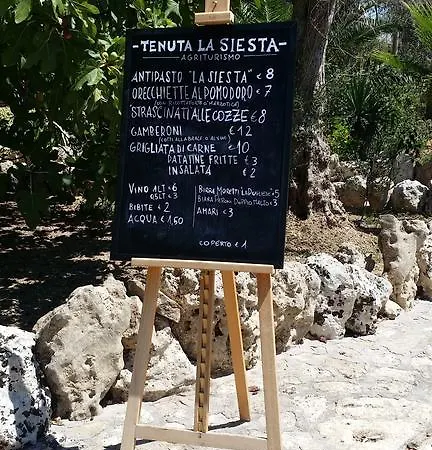 -TENUTA LA SIESTA-
AGRITURISMO
ANTIPASTO "LA SIESTA" € 8
ORECCHIETTE AL POMODORO € 7
STRASCINATI ALLE COZZE € 8
GAMBERONI € 12
GRIGLIATA DI CARNE € 10
PATATINE FRITTE € 3
INSALATA € 2
VINO ALT €6
BIBITE € 2
ACQUA € 1,50
BIRRA MORETTI
AMARI € 3
COPERTO € 1